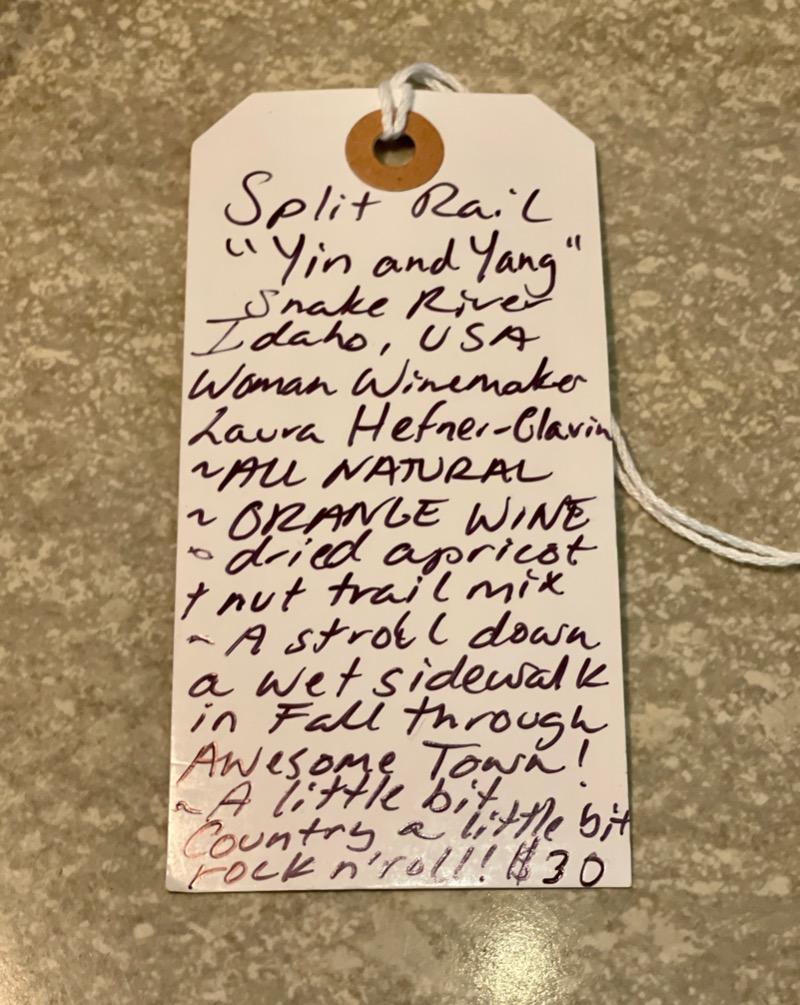 Split Rail
"Yin and Yang"
Snake River
Idaho, USA
Woman Winemaker
Laura Hefner-Clavin
~ALL NATURAL
~ ORANGE WINE
~ dried apricot
+ nut trail mix
~ A stroll down
a wet sidewalk
in Fall through
AWesome Town!
~ A little bit
Country a little bit
rock n' roll! $30